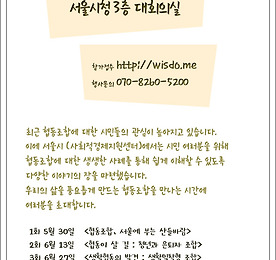 서울시청 3층 대회의실
참가접수 http://wisdo.me
행사문의 070-8260-5200
최근 협동조합에 대한 시민들의 관심이 높아지고 있습니다.
이에 서울시 (사회적경제지원센터)에서는 시민 여러분을 위해
협동조합에 대한 생생한 사례를 통해 쉽게 이해할 수 있도록
다양한 이야기의 장을 마련했습니다.
우리의 삶을 풍요롭게 만드는 협동조합을 만나는 시간에
여러분을 초대합니다.
1회 5월 30일 <협동조합, 서울에 부는 산들바람>
2회 6월 13일 <협동이 살 길 : 청년과 은퇴자 조합>
3회 6월 27일 <생활협동의 발견 : 생활밀착형 조합>